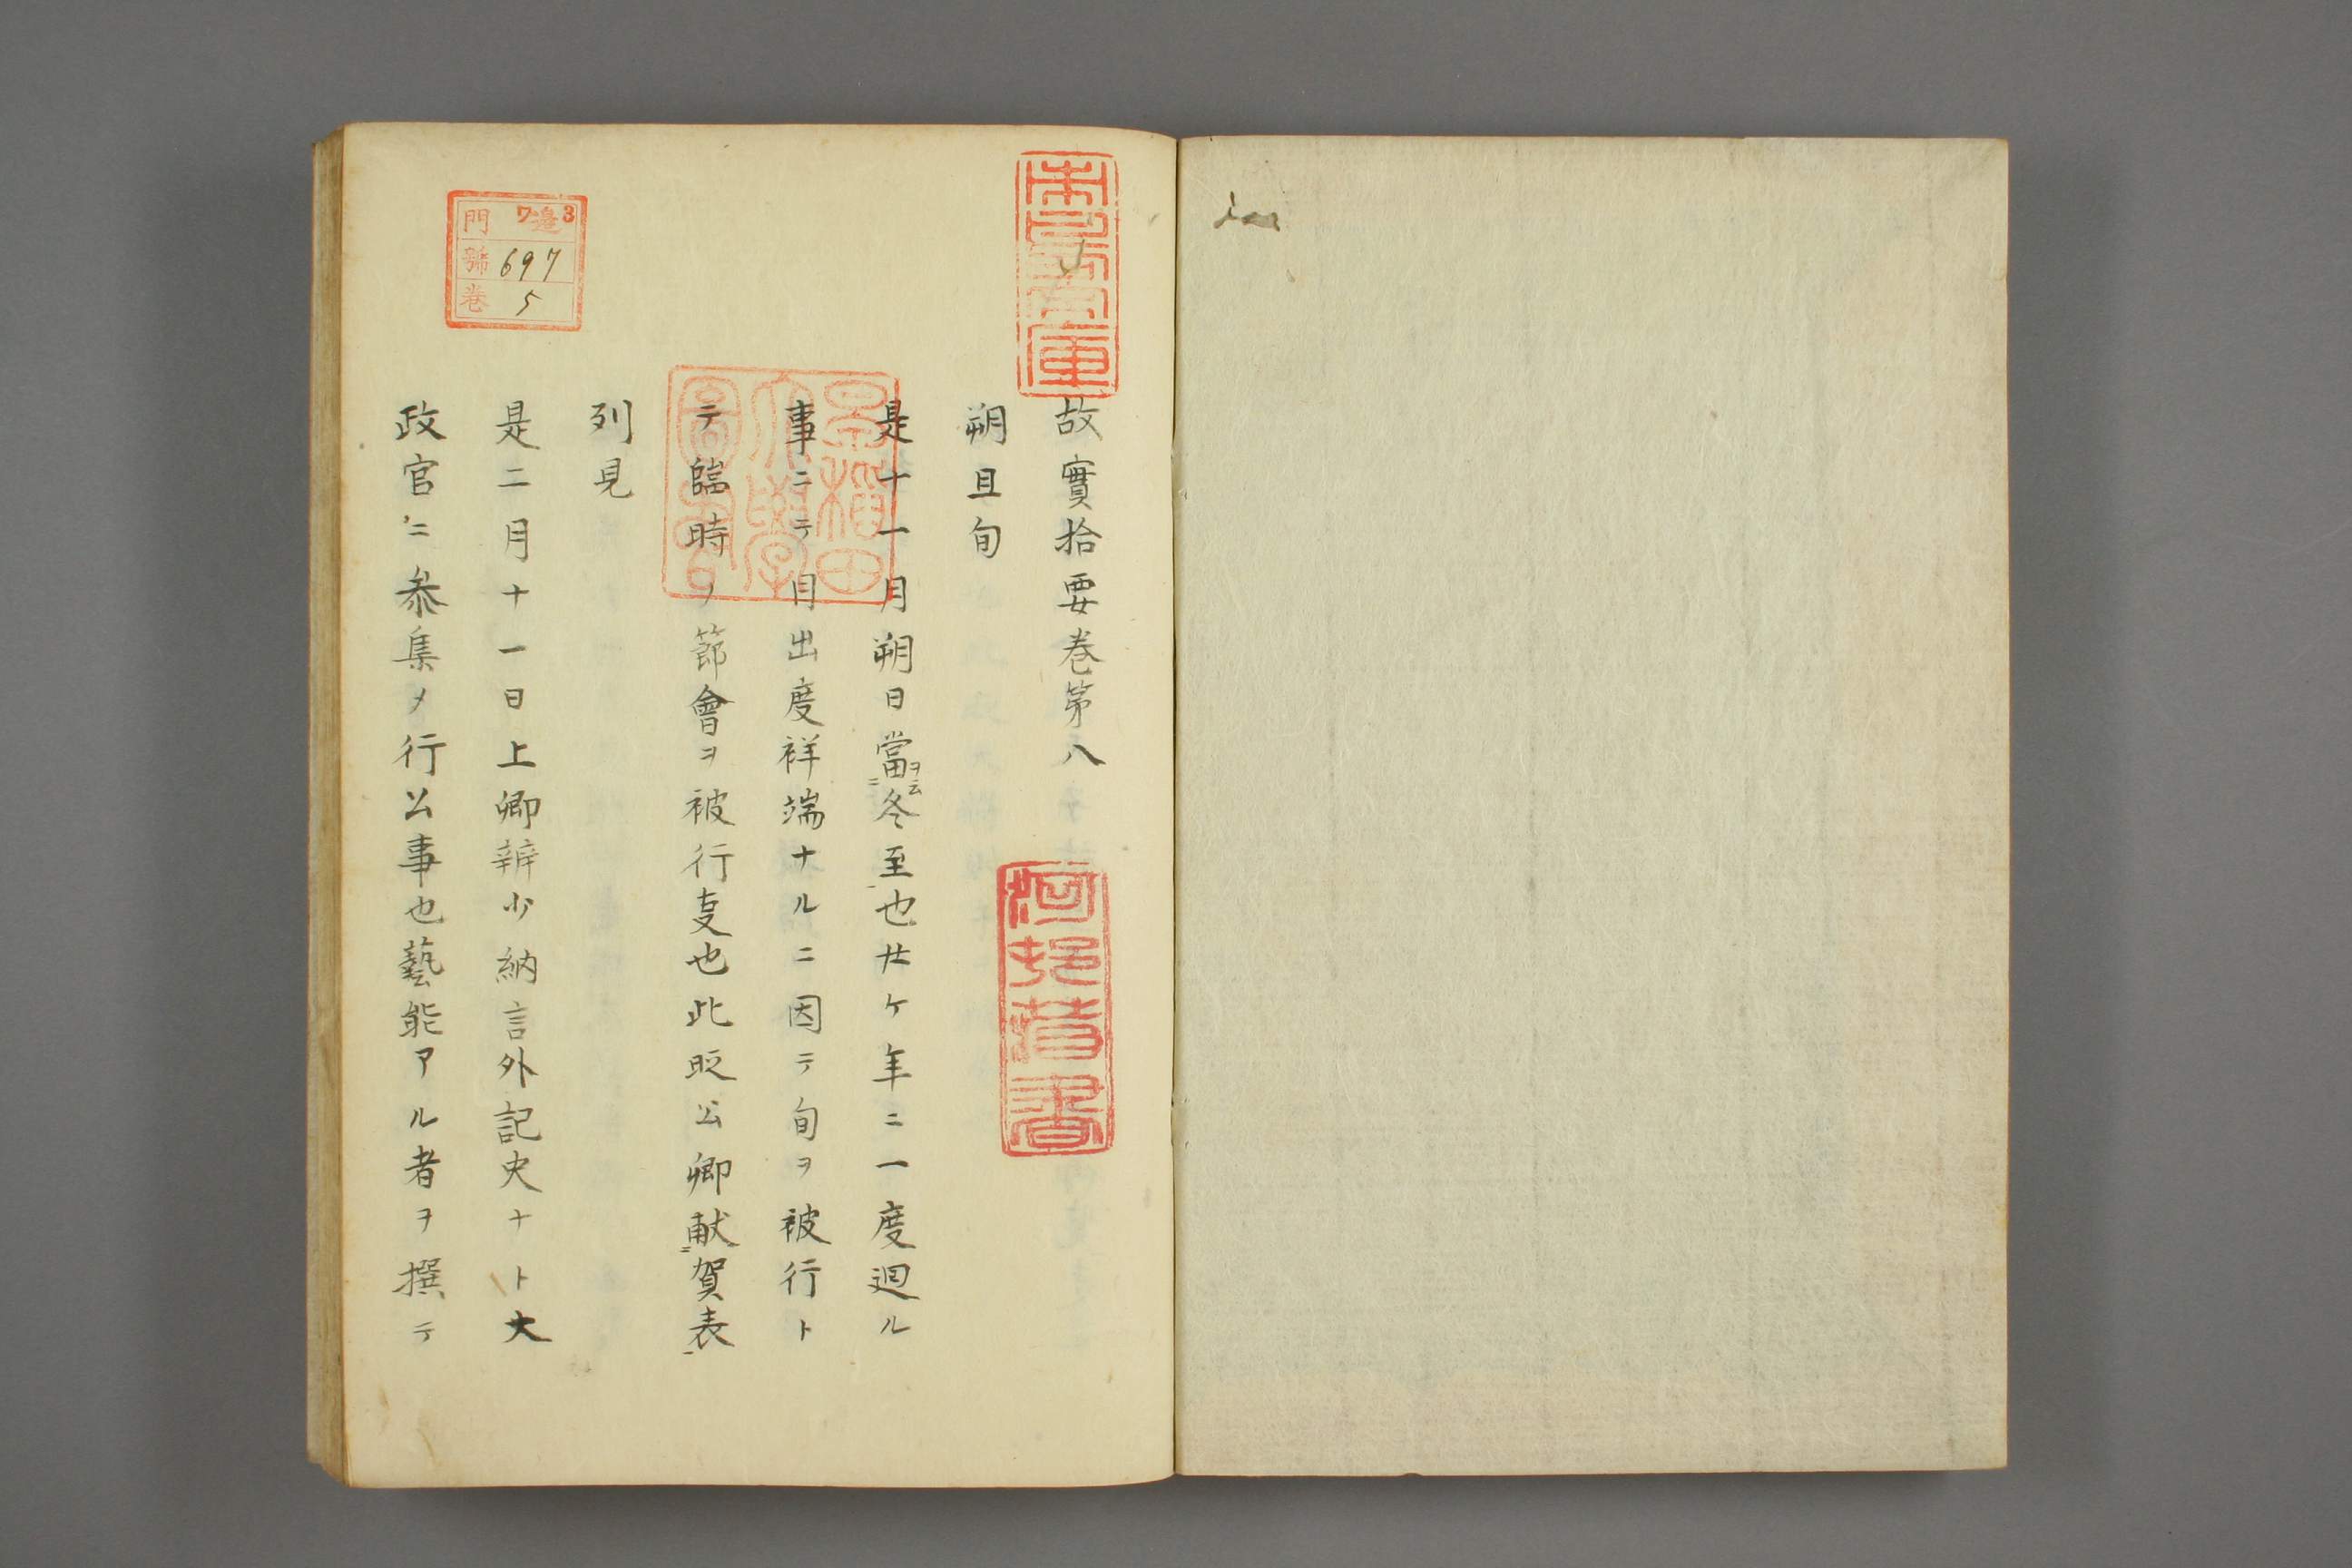 故實拾要卷第八
朔旦旬
是十一月朔日當ヲ云ニ冬至一也廿ケ年ニ一度廻ル
事ニテ目出度祥端ナルニ因テ旬ヲ被行ト
テ臨時ノ節會ヲ被行叓也此時公卿献ニ賀表一
列見
是二月十一日上卿辨少納言外記史ナト大
政官ニ参集メ行公事也藝能アル者ヲ撰テ
早稲田大學圖書
門 ワ邉3
號 697
卷 5